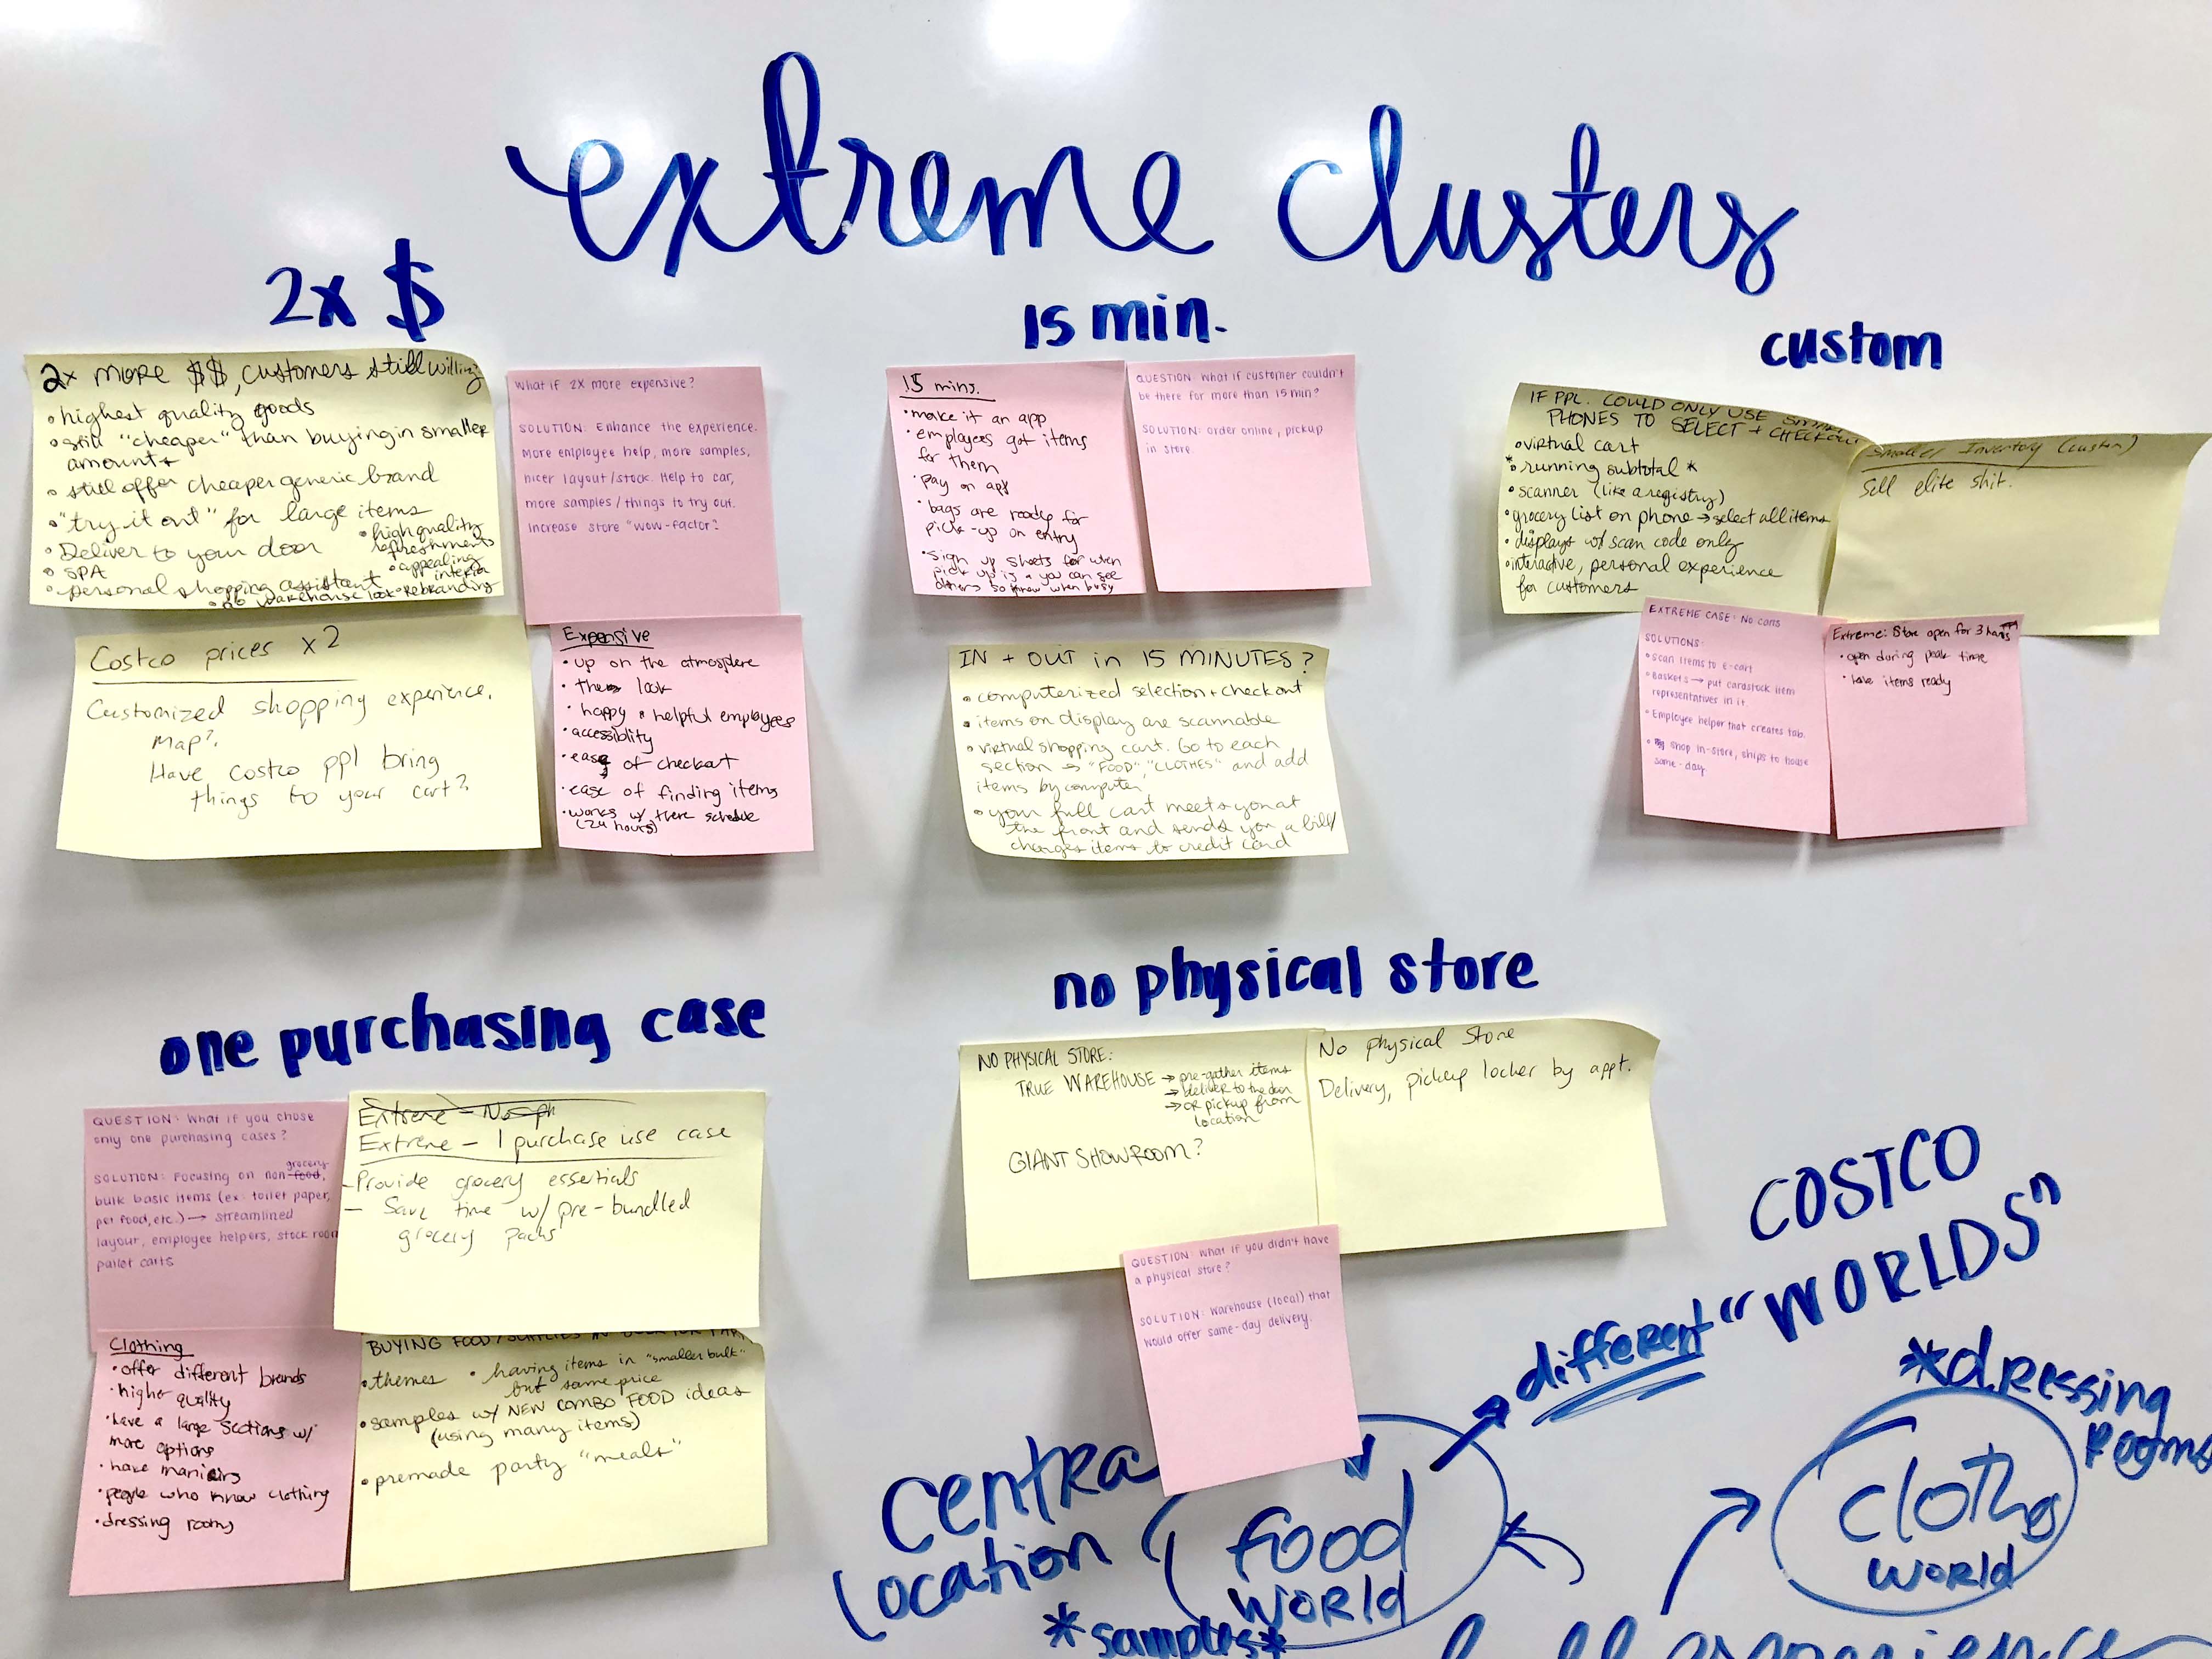 extreme clusters
2x $
2x more $$, customers still willing
• highest quality goods
• still "cheaper" than buying in smaller
amounts
• still offer cheaper generic brand
• "try it out" for large items
• Deliver to your door
• high quality
refreshments
• SPA
• appealing
interior
• personal shopping assistant
• no warehouse look
• rebranding
What if 2X more expensive?
SOLUTION: Enhance the experience.
More employee help, more samples,
nicer layout/stock. Help to car,
more samples/things to try out.
Increase store "wow-factor"
Costco prices x2
Customized shopping experience.
Map?
Have costco ppl bring
things to your cart?
Expensive
• up on the atmosphere
• the look
• happy & helpful employees
• accessiblity
• ease of checkout
• ease of finding items
• works w/ there schedule
(24 hours)
15 min.
15 mins.
• make it an app
• employees got items
for them
• pay on app
• bags are ready for
pick-up on entry
• sign up sheets for when
pick up is & you can see
others so know when busy
QUESTION: What if customer couldn't
be there for more than 15 min?
SOLUTION: Order online, pickup
in store
IN + OUT in 15 MINUTES?
• computerized selection + checkout
• items on display are scannable
• virtual shopping cart. Go to each
section → "FOOD", "CLOTHES" and add
items by computer
• your full cart meets you at
the front and sends you a bill/
charges items to credit card
custom
IF PPL. COULD ONLY USE SMART
PHONES TO SELECT + CHECKOUT
• virtual cart
* running subtotal *
• scanner (like a registry)
• grocery list on phone → select all items
• displays w/ scan code only
• interactive, personal experience
for customers
Smaller Inventory (custom)
Sell elite shit.
EXTREME CASE: No carts
SOLUTIONS:
• Scan items to e-cart
• Baskets → put cardstock item
representatives in it.
• Employee helper that creates tab.
• shop in-store, ships to house
same-day
Extreme: Store open for 3 hours
• open during peak time
• have items ready
one purchasing case
QUESTION: What if you chose
only one purchasing cases?
grocery
SOLUTION: Focusing on non-food,
bulk basic items (ex: toilet paper,
pet food, etc.) → streamlined
layout, employee helpers, stock room
pallet carts
Extreme - No ph
Extreme - 1 purchase use case
- Provide grocery essentials
- Save time w/ pre-bundled
grocery packs
Clothing
• offer different brands
• higher quality
• have a large sections w/
more options
• have
• people who know clothing
• dressing rooms
BUYING FOOD/SUPPLIES IN
• themes
• having items in "smaller bulk"
but same price
• samples w/ NEW COMBO FOOD ideas
(using many items)
• premade party "meals"
no physical store
NO PHYSICAL STORE:
TRUE WAREHOUSE → pre-gather items
→ deliver to the door
→ OR pickup from
location
GIANT SHOWROOM?
No physical Store
Delivery, pickup locker by appt.
QUESTION: What if you didn't have
a physical store?
SOLUTION: Warehouse (local) that
would offer same-day delivery.
COSTCO
different "WORLDS"
centra
location
food
world
*samples*
*dressing
rooms
world